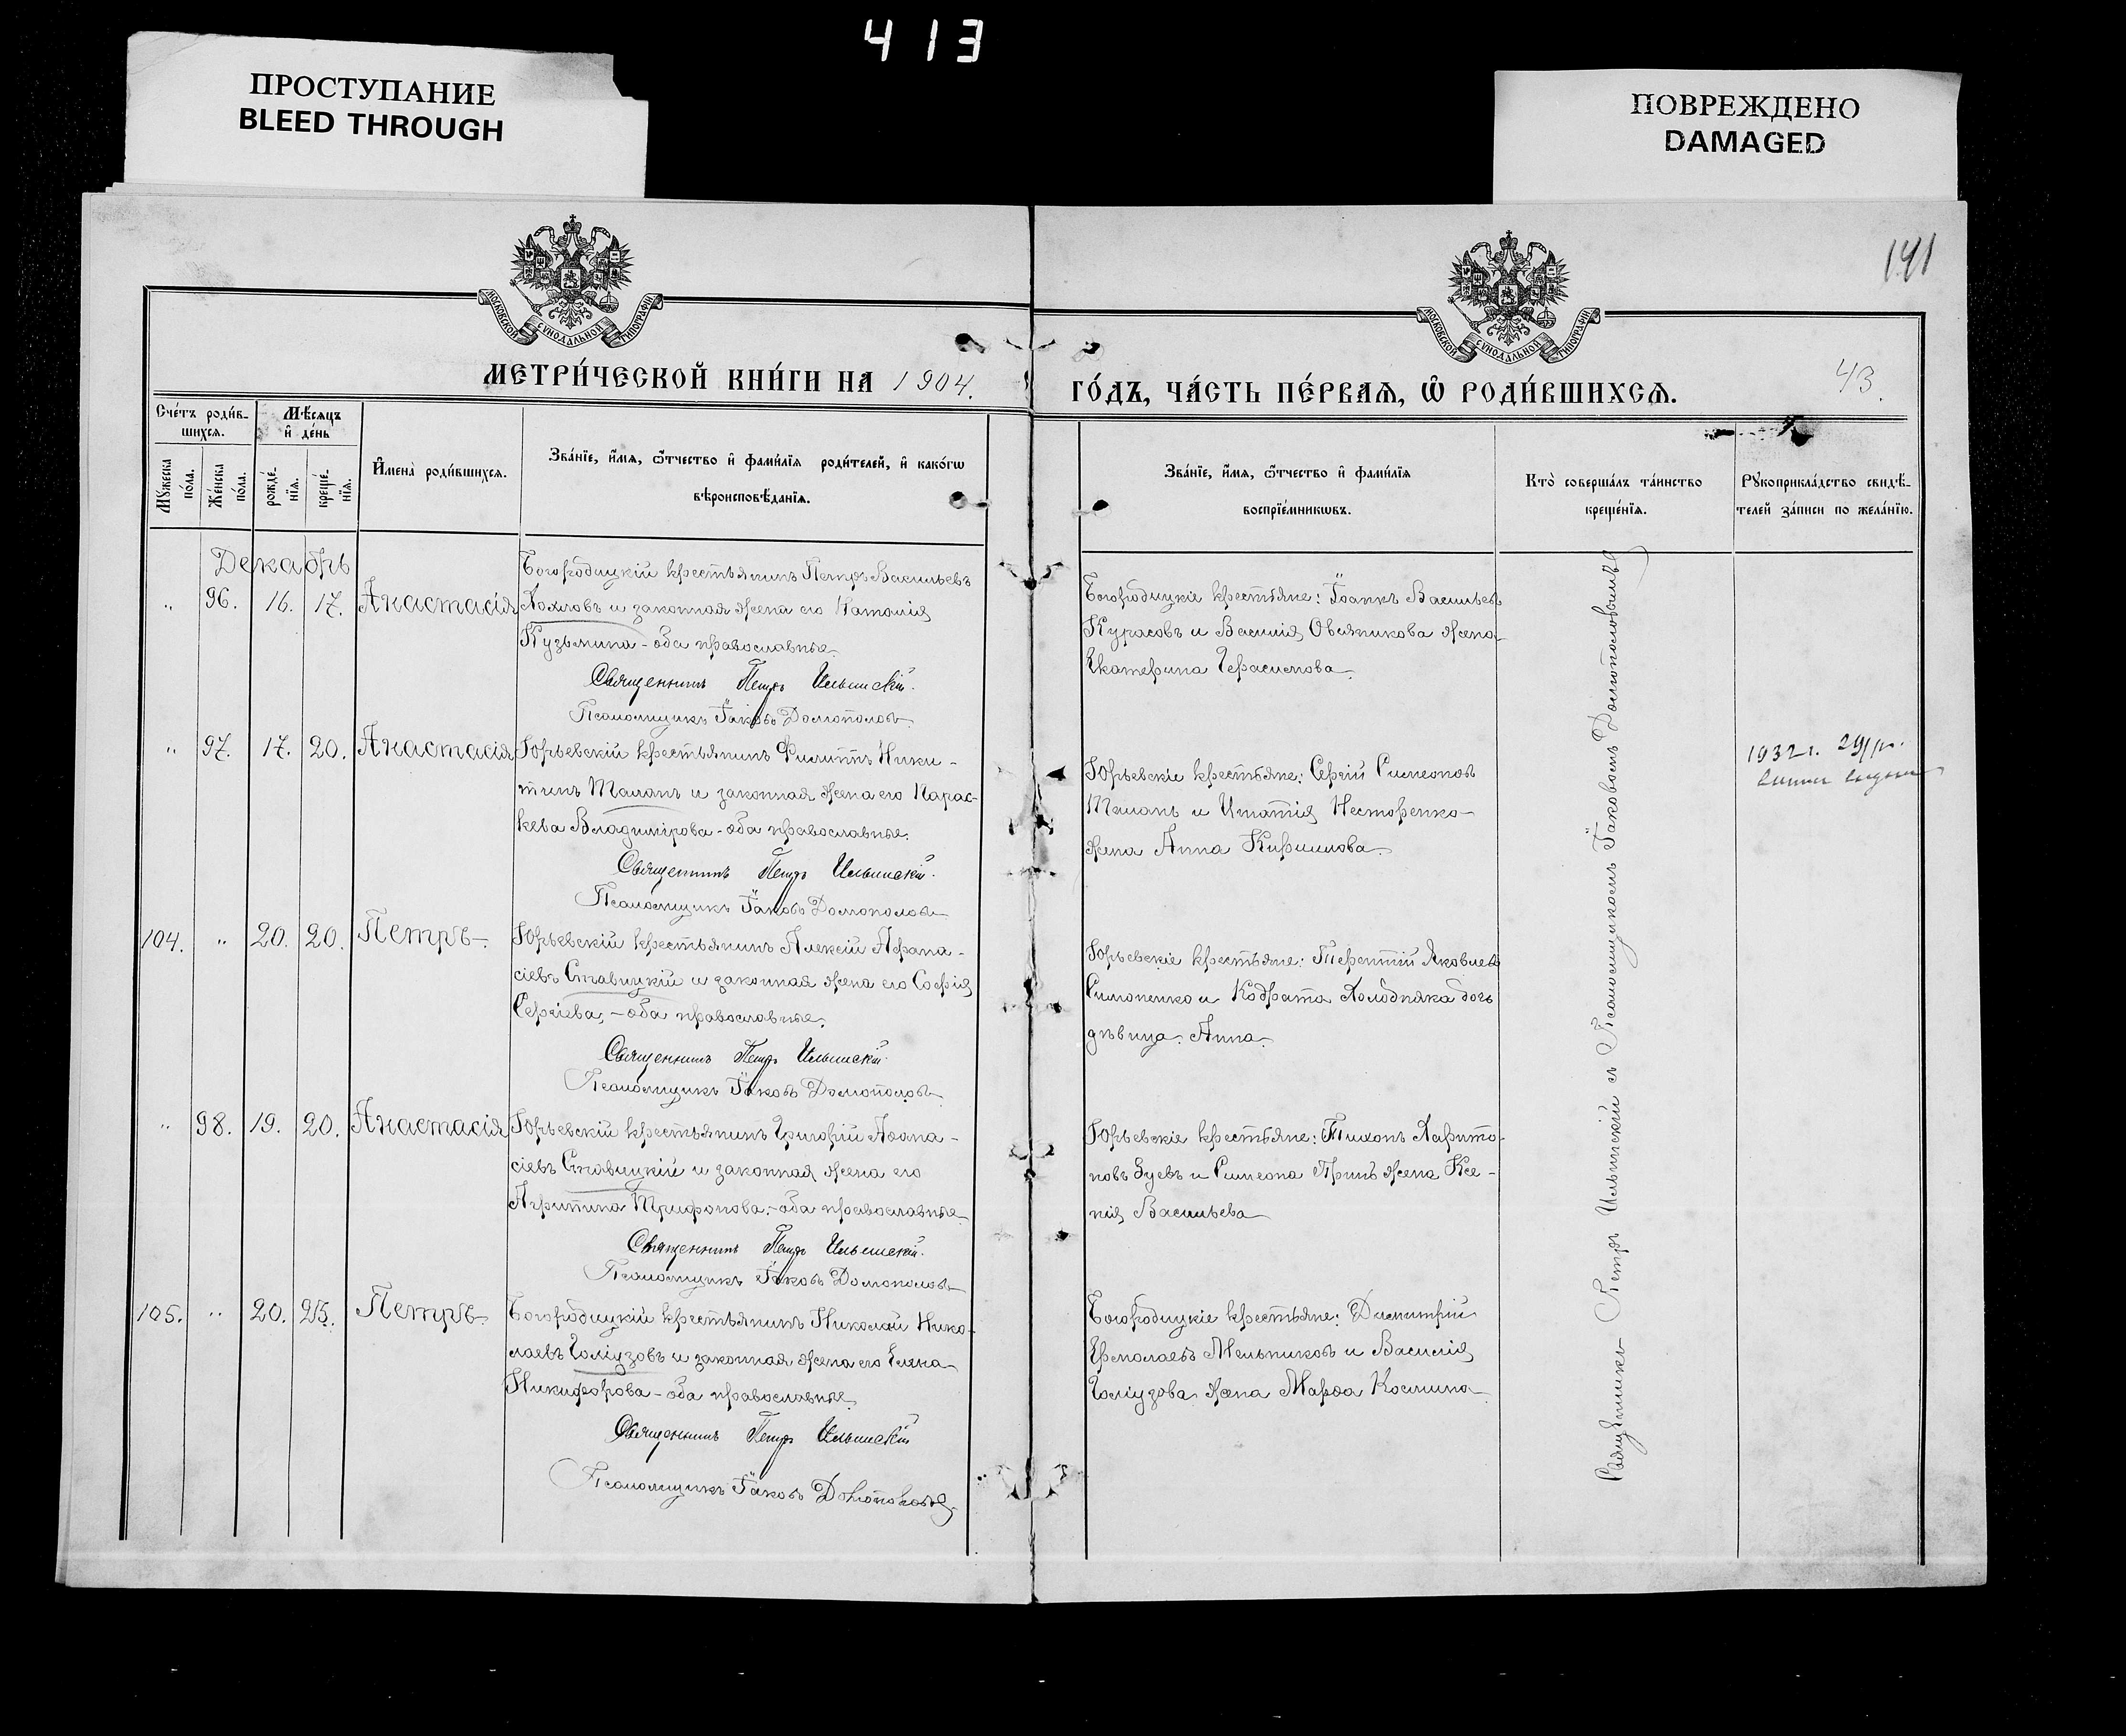 413
ПРОСТУПАНИЕ
BLEED THROUGH
ПОВРЕЖДЕНО
DAMAGED
141
МОСКОВСКОЙ СѴНОДАЛЬНОЙ ТИПОГРАФІИ
МОСКОВСКОЙ СѴНОДАЛЬНОЙ ТИПОГРАФІИ
МЕТРИ́ЧЕСКОЙ КНИ́ГИ НА 1904.
ГО́ДЪ, ЧА́СТЬ ПЕ́РВАѦ, Ѽ РОДИ́ВШИХСѦ.
43.
Сче́тъ роди́в-
шихсѧ.
Мѣ́сѧцъ
и҆ де́нь
Мꙋ́жеска
по́ла.
Же́нска
по́ла.
рожде́-
нїѧ.
креще́-
нїѧ.
И҆мена̀ роди́вшихсѧ.
Зва́нїе, и҆́мѧ, ѻ҆́тчество и҆ фами́лїѧ роди́телей, и҆ како́гѡ
вѣроисповѣ́данїѧ.
Зва́нїе, и҆́мѧ, ѻ҆́тчество и҆ фами́лїѧ
воспрїе́мникѡвъ.
Кто̀ соверша́лъ та́инство
креще́нїѧ.
Рꙋкоприкла́дство свидѣ́-
телей за́писи по жела́нїю.
Декабрь
" 96. 16. 17. Анастасія
Богородицкій крестьянинъ Петръ Васильевъ
Хохловъ и законная жена его Наталія
Кузьмина - оба православные.
Священникъ Петръ Ильинскій.
Псаломщикъ Іаковъ Домополовъ
Богородицкіе крестьяне: Іоаннъ Васильевъ
Курасовъ и Василія Овсяникова жена
Екатерина Герасимова.
" 97. 17. 20. Анастасія
Юрьевскій крестьянинъ Филиппъ Ники-
тинъ Таланъ и законная жена его Парас-
кева Владимірова - оба православные.
Священникъ Петръ Ильинскій.
Псаломщикъ Іаковъ Домополовъ
Юрьевскіе крестьяне: Сергій Симеоновъ
и Игнатія Несторенко
жена Анна Кириллова.
1932 г.
104. " 20. 20. Петръ.
Юрьевскій крестьянинъ Алексій Афана-
сіевъ Ставицкій и законная жена его Софія
Сергіева, - оба православные.
Священникъ Петръ Ильинскій.
Псаломщикъ Іаковъ Домополовъ
Юрьевскіе крестьяне: Терентій Яковлевъ
Симоненко и Кодрата Холодняка дочь
дѣвица Анна.
" 98. 19. 20. Анастасія
Юрьевскій крестьянинъ Григорій Аѳана-
сіевъ Ставицкій и законная жена его
Агрипина Трифонова. - оба православные.
Священникъ Петръ Ильинскій.
Псаломщикъ Іаковъ Домополовъ
Юрьевскіе крестьяне: Тихонъ Харито-
новъ Зуевъ и Симеона жена Ксе-
нія Васильева
105. " 20. 25. Петръ.
Богородицкій крестьянинъ Николай Нико-
лаевъ Голіузовъ и законная жена его Елена
Никифорова - оба православные.
Священникъ Петръ Ильинскій
Псаломщикъ Іаковъ Домополовъ.
Богородицкіе крестьяне: Димитрій
Ермолаевъ Мельниковъ и Василія
Голіузова жена Марѳа Космина
Священникъ Петръ Ильинскій съ Псаломщикомъ Іаковомъ Домополовымъ